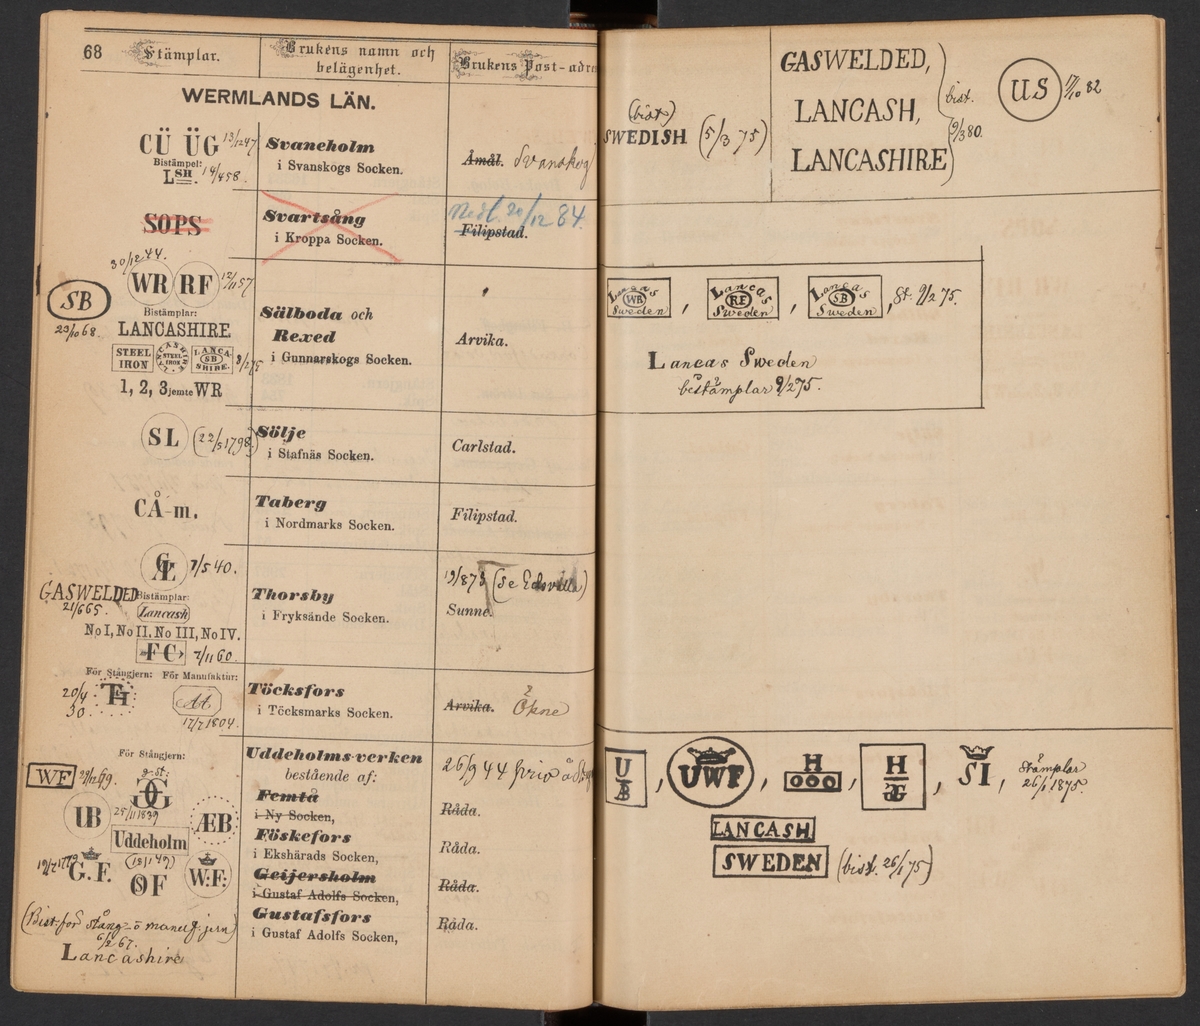 68
Stämplar.
Brukens namn och
belägenhet.
Brukens Post-adre
WERMLANDS LÄN.
CÜ ÜG 13/12 47
Bistämpel:
LSH. 14/4 58.
Svaneholm
i Svanskogs Socken.
Åmål. Svanskog
SOPS
Svartsång
i Kroppa Socken.
Nedl. 20/12 84.
Filipstad.
30/12 44.
WR RF 12/11 57
SB
23/10 68.
Bistämplar:
LANCASHIRE.
STEEL
IRON
LANCASHIRE
STEEL
IRON
LANCA-
SB
SHIRE.
9/2 75
1, 2, 3 jemte WR
Sälboda och
Rexed
i Gunnarskogs Socken.
Arvika.
SL (22/5 1798.)
Sölje
i Stafnäs Socken.
Carlstad.
CÅ-m.
Taberg
i Nordmarks Socken.
Filipstad.
7/5 40.
GASWELDED
21/6 65.
Bistämplar:
Lancash
No I, No II. No III, No IV.
FC 7/11 60.
Thorsby
i Fryksände Socken.
19/8 73 (Se Edsvalla)
Sunne.
För Stångjern: För Manufaktur:
20/4
30.
TH
17/7 1804.
Töcksfors
i Töcksmarks Socken.
Arvika. Ökne
För Stångjern:
WF 29/12 69.
g. st:
GG
UB
25/11 1839
ÆB
Uddeholm
19/7 1773
G.F.
(18/1 49)
SF
W:F:
(Bist för stång- o manuf.jern)
6/2 67.
Lancashire
Uddeholms-verken
bestående af:
26/9 44
Femtå
i Ny Socken,
Råda.
Föskefors
i Ekshärads Socken,
Råda.
Geijersholm
i Gustaf Adolfs Socken,
Råda.
Gustafsfors
i Gustaf Adolfs Socken,
Råda.
(bist)
SWEDISH (5/3 75)
GASWELDED,
LANCASH,
LANCASHIRE
bist.
9/3 80.
US 17/10 82
Lancas
WR
Sweden
,
Lancas
RF
Sweden
,
Lancas
SB
Sweden
, St. 9/2 75.
Lancas Sweden
bistämplar 9/2 75.
U
Æ
B
, UWF , H
OOO
, H
GG
, SI, Stämplar
26/1 1875.
LANCASH
SWEDEN (bist. 26/1 75)